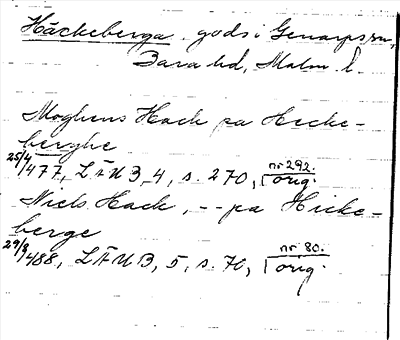 Häckeberga, gods i Genarps sn,
Bara hd, Malm. l.
Moghens Hack pa Hecke-
berghe
25/4 1477, LÄUB, 4, s. 270, nr 292. orig.
Niels Hack, -- pa Hicke-
berge
29/8 1488, LÄUB, 5, s. 70, nr 80. orig.